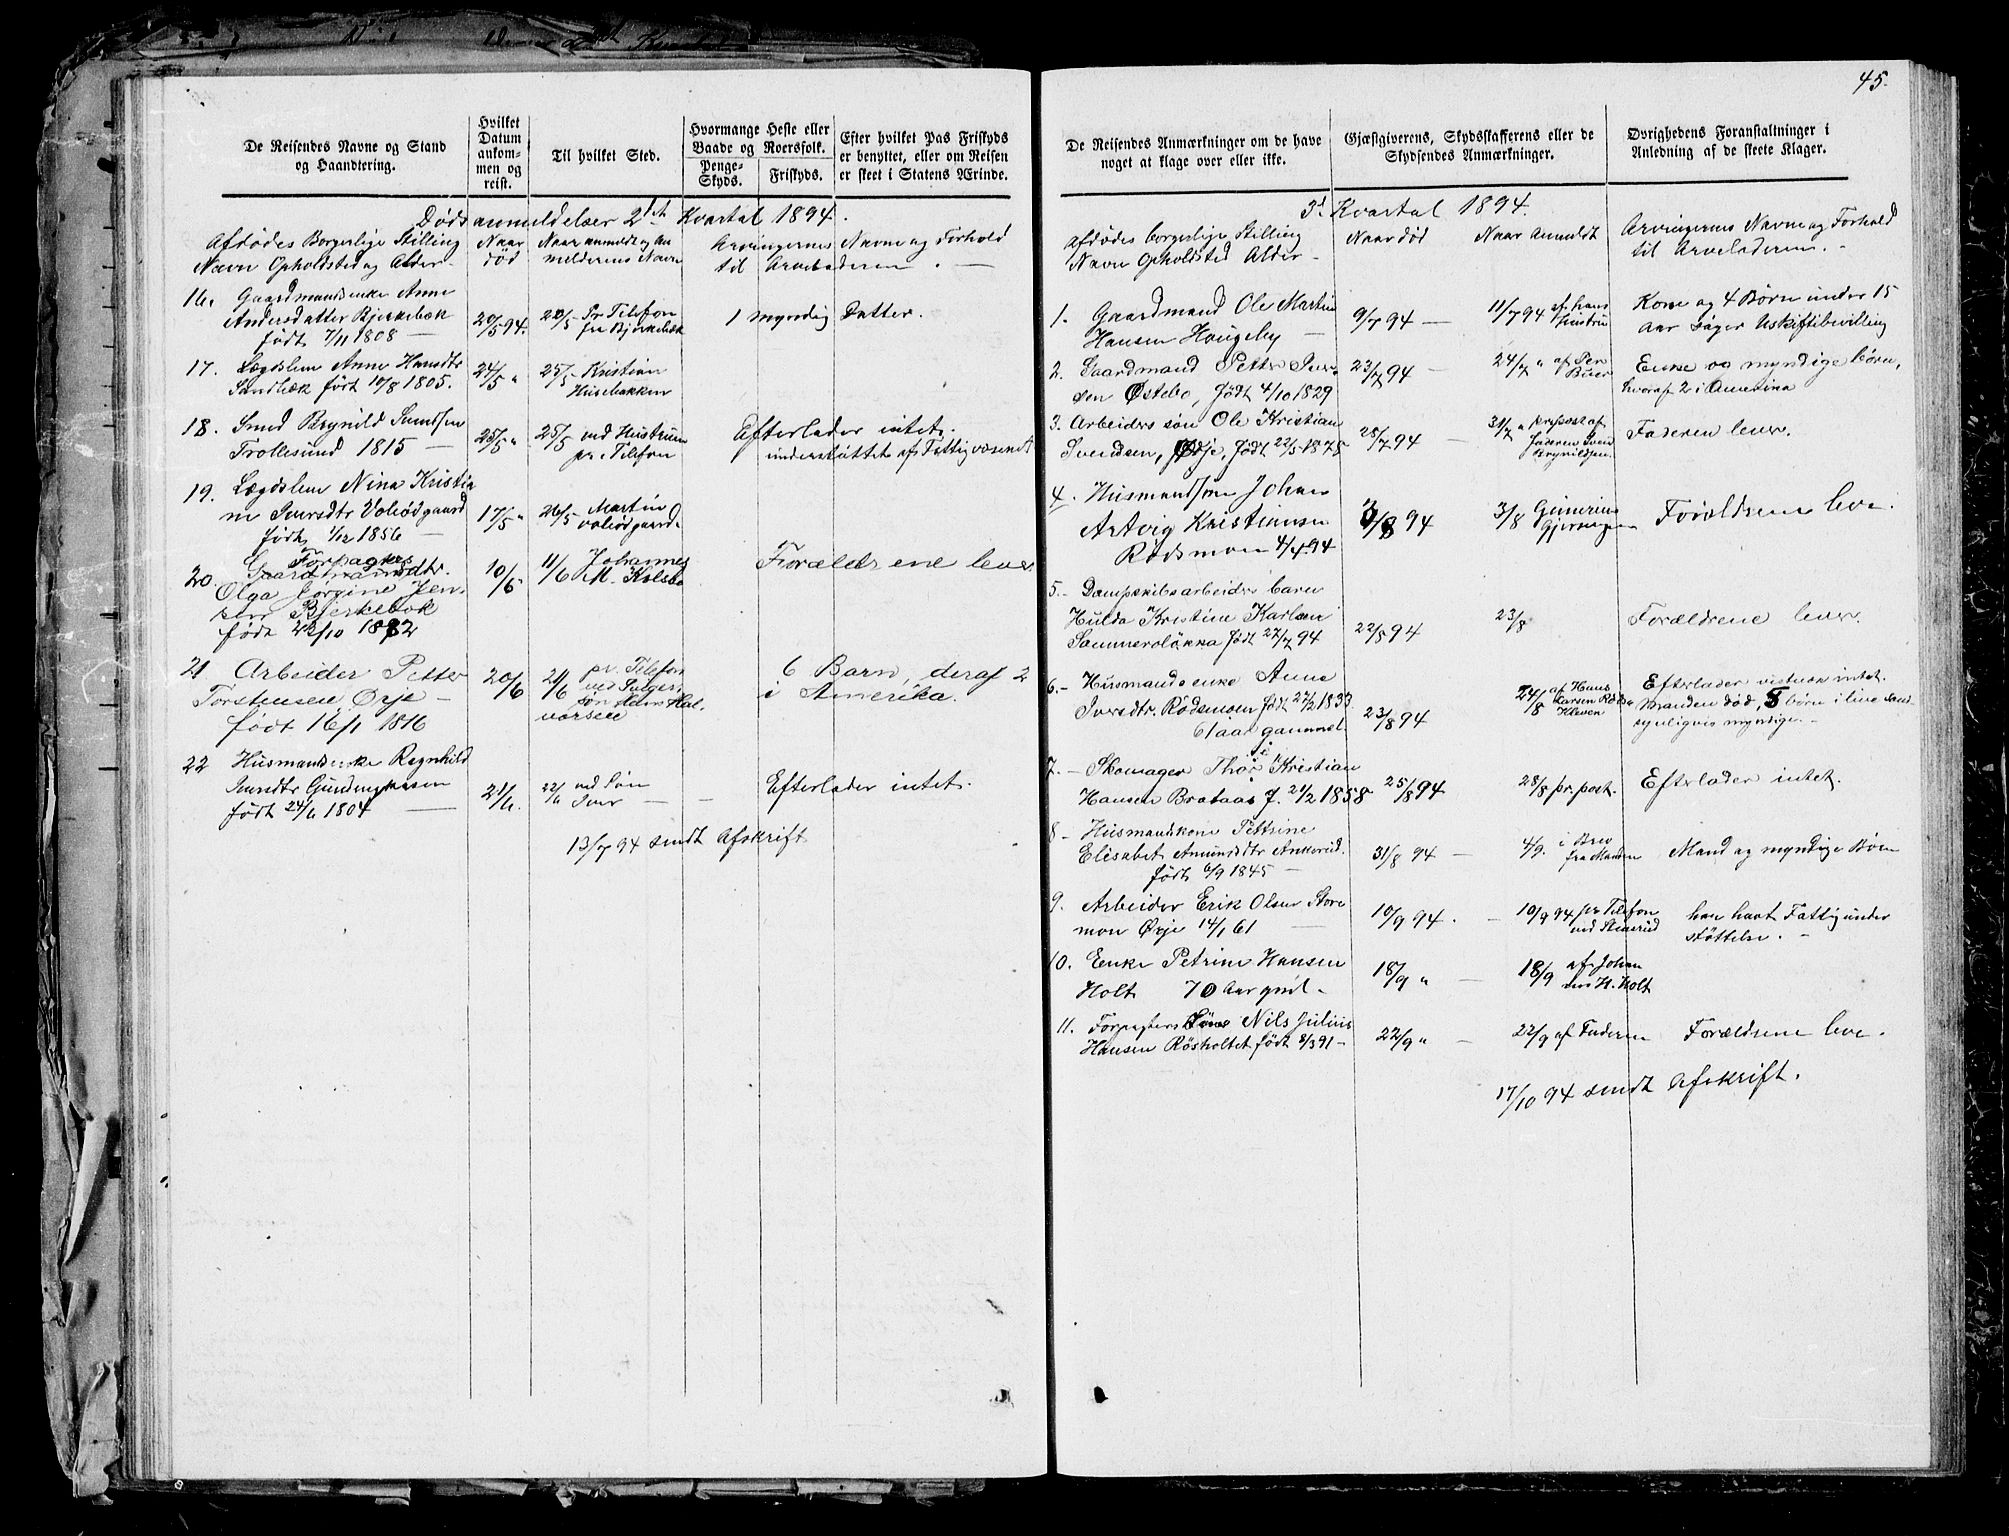 De Reisendes Navne og Stand
og Haandtering.
Hvilket
Datum
ankom-
men og
reist.
Til hvilket Sted.
Hvormange Heste eller
Baade og Roersfolk.
Penge-
Skyds.
Friskyds.
Efter hvilket Pas Friskyds
er benyttet, eller om Reisen
er skeet i Statens Ærinde.
Dødsanmeldelser 2det Kvartal 1894.
Afdødes Borgerlige Stilling
Navn Opholdsted og Alder
Naar
død
Naar anmeldt og An
melderens Navn
Arvingernes Navne og Forhold
til Arveladeren.
16. Gaardmandsenke Anne
Andersdatter Bjerkebæk
født 7/11 1808
20/5 94.
20/5 Pr Telefon
fra Bjerkebæk
1 myndig Datter.
17. Lægdslem Anne Hansdtr
Sandbæk født 17/8 1805.
24/5 "
25/5 Kristian
Husebakken
18. Smed Brynild
Trollesund 1815
25/5 "
25/5 ved Hustruen
pr. Telefon
Efterlader intet.
understøttet af Fattigvæsenet
19. Lægdslem Nina Kristia
ne Iversdtr
født 1/12 1856
17/5 "
26/5 Martin
20. Forpagter
Gaardmandsdtr.
Olga Jørgine Jen-
sen Bjerkebæk
født 22/10 1882
10/6
11/6 Johannes
M. Kolsbø
Forældrene lever
21 Arbeider Petter
Torstensen Ørje
født 16/1 1816
20/6
21/6 pr. Telefon
ved
søn Hans Hal-
vorsen
6 Barn, deraf 2
i Amerika.
22 Husmandsenke Ragnhild
født 24/6 1804
21/6.
22/6 ved Søn
Iver
Efterlader intet.
13/7 94 sendt Afskrift
45.
De Reisendes Anmærkninger om de have
noget at klage over eller ikke.
Gjæstgiverens, Skydsskafferens eller de
Skydsendes Anmærkninger.
Øvrighedens Foranstaltninger i
Anledning af de skeete Klager.
3d Kvartal 1894.
Afdødes borgerlige Stilling
Navn Opholdsted Alder
Naar død
Naar Anmeldt
Arvingernes Navne og Forhold
til Arveladeren.
1. Gaardmand Ole Martin
Hansen Haugeby
9/7 94
11/7 94 af hans
hustru
Kone og 4 Børn under 15
Aar søger Uskiftibevilling
2. Gaardmand Petter Iver
sen Østebø, født 4/10 1829
23/7 94
24/7 " af Per
Buer
Enke og myndige børn,
hvoraf 2 i Amerika
3. Arbeiders søn Ole Kristian
Svendsen, Ørje, født 22/5 1875
28/7 94
31/7 " pr. post af
Faderen Svend
Brynildsen
Faderen lever.
4. Husmandssøn Johan
Artvig Kristiansen
Rødsmoen 4/4 94
3/8 94
3/8 Gunerius
Forældrene leve.
5. Dampskibsarbeiders barn
Hulda Kristine Karlsen
Sommerroløkka født 27/7 94
22/8 94
23/8
Forældrene lever.
6. Husmandsenke Anne
Iversdtr. Rødsmoen født 27/2 1833
61 aar gammel
23/8 94
24/8 af Hans
Larsen Røds
Kleven
Efterlader vistnok intet.
Manden død, 5 børn i live sand-
synligvis myndige.
7. Skomager Thor Kristian
Hansen Brabaas f. 21/2 1858
25/8 94
28/8 pr. post.
Efterlader intet.
8 Husmandskone Pettrine
Elisabet Amundsdtr Ankerud.
født 6/9 1845
31/8 94
4/9. i Brev
fra Manden
Mand og myndige Børn
9. Arbeider Erik Olsen Store
mon Ørje 14/1 61
10/9 94.
10/9 94 pr Telefon
ved Stenerud
han havt Fattigunder
støttelse.
10. Enke Petrine Hansen
Holt 70 Aar gml.
18/9 "
18/9 af Johan
H. Holt
11. Forpagters Søn Nils Julius
Hansen Røsholtet født 8/3 91
22/9 "
22/9 af Faderen
Forældrene leve.
17/10 94 sendt Afskrift.